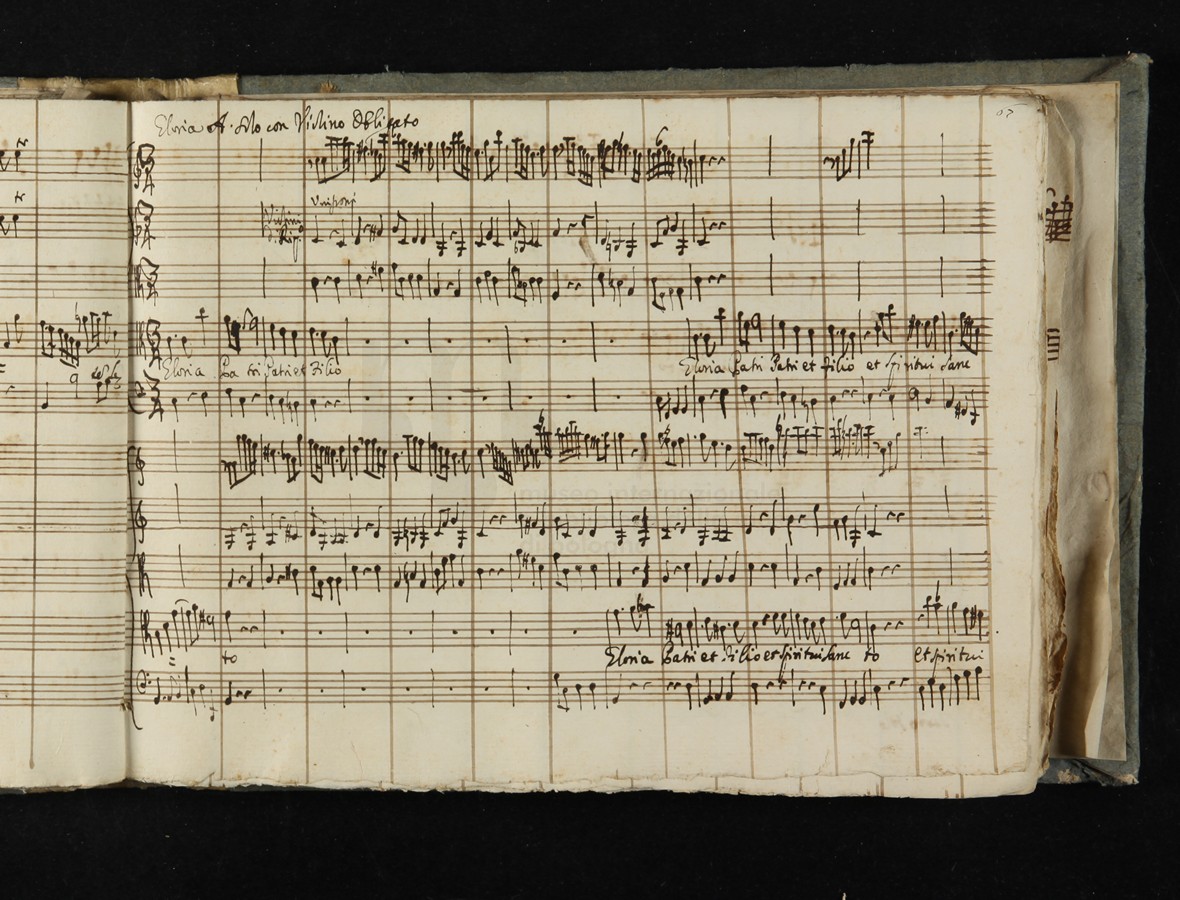 Gloria A. Solo con Violino Obligato
Unisoni
Gloria Pa tri Patri et Filio
Gloria Patri Patri et Filio et spiritui Sanc
to
Gloria Patri et Filio et spiritui sanc to et spiritui
museo internazionale